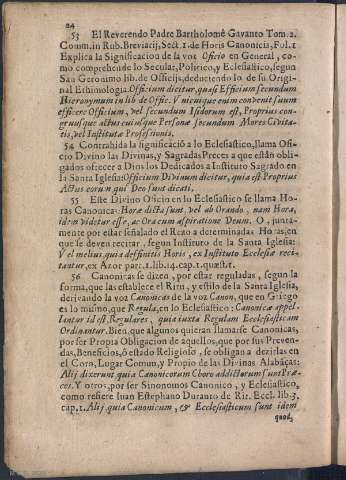 24
53 El Reverendo Padre Bartholomé Gavanto Tom. 2.
Comm. in Rub. Breviarij, Sect. 1. de Horis Canonicis, Fol. 1
Explica la Significacion de la voz Oficio en General, co-
mo comprehende lo Secular, Politico, y Eclesiastico, segun
San Geronimo lib. de Officijs, deduciendo lo de su Origi-
nal Ethimologia. Officium dicitur, quasi Efficium secundum
Hieronymum in lib. de Offic. Vnicuique enim convenit suum
efficere Officium, vel secundum Isidorum est, Proprius con-
gruusque actus cuiusque Personæ secundum Mores Civita-
tis, vel Institutæ Professionis.
54 Contrahida la significació a lo Eclesiastico, llama Ofi-
cio Divino las Divinas, y Sagradas Preces a que están obli-
gados ofrecer a Dios los Dedicados a Instituto Sagrado en
la Santa Iglesia: Officium Divinum dicitur, quia est Proprius
Actus eorum qui Deo sunt dicati.
55 Este Divino Oficio en lo Eclesiastico se llama Ho-
ras Canonica: Horæ dictæ sunt, vel ab Orando, nam Hora,
idem videtur esse, ac Ora cum aspiratione Deum. O, junta-
mente por estar señalado el Reço a determinadas Horas, en
que se deven recitar, segun Instituto de la Santa Iglesia:
Vel melius, quia definitis Horis, ex Instituto Ecclesiæ reci-
tantur, ex Azor part. 1. lib. 14. cap. 1. quæst. 1.
56 Canonicas se dizen, por estar reguladas, segun la
forma, que las establece el Ritu, y estilo de la Santa Iglesia,
derivando la voz Canonicas de la voz Canon, que en Griego
es lo mismo, que Regula, en lo Eclesiastico: Canonicæ appel-
lantur id est Regulares, quia juxta Regulam Ecclesiasticam
Ordinantur. Bien, que algunos quieran llamarse Canonicas,
por ser Propia Obligacion de aquellos, que por sus Preven-
das, Beneficios, ò estado Religioso, se obligan a dezirlas en
el Coro, Lugar Comun, y Propio de las Divinas Alabáças:
Alij dixerunt, quia Canonicorum Choro addictorum sunt Præ-
ces. Y otros, por ser Sinonomos Canonico, y Eclesiastico,
como refiere Iuan Estephano Duranto de Rit. Eccl. lib. 3.
cap. 1. Alij quia Canonicum, & Ecclesiasticum sunt idem
quod,